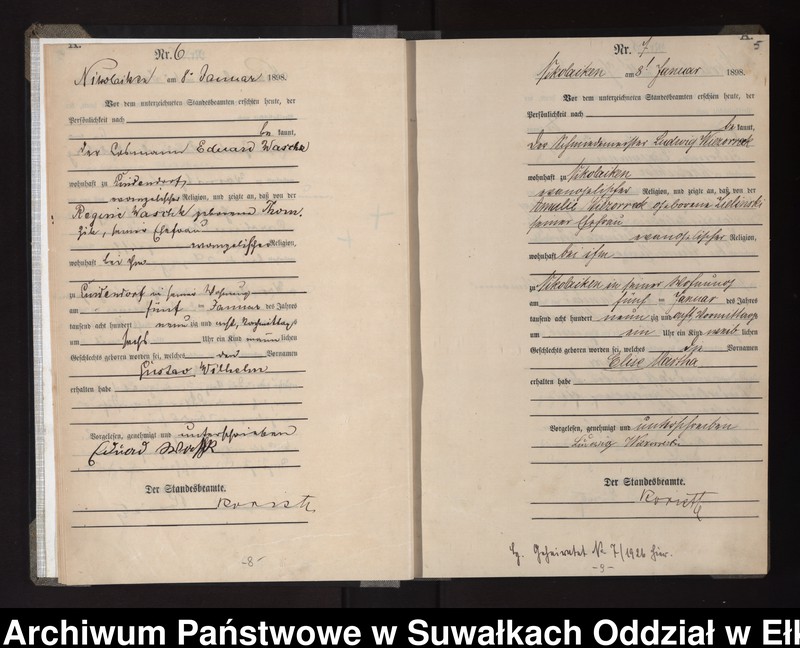 Nr. 6
Nikolaiken am 8. Januar 1898.
Vor dem unterzeichneten Standesbeamten erschien heute, der
Persönlichkeit nach
be kannt,
der Losmann Eduard Waschk
wohnhaft zu Lindendorf,
evangelischer Religion, und zeigte an, daß von der
Regine Waschk geborenen Thom
zik, seiner Ehefrau
evangelischer Religion,
wohnhaft bei ihm
zu Lindendorf in seiner Wohnung
am fünf ten Januar des Jahres
tausend acht hundert neun zig und acht, Nachmittags
um sechs Uhr ein Kind männ lichen
Geschlechts geboren worden sei, welches den Vornamen
Gustav Wilhelm
erhalten habe
Vorgelesen, genehmigt und unterschrieben
Eduard
Der Standesbeamte.
-8-
A.
5
Nr. 7
Nikolaiken am 8t Januar 1898.
Vor dem unterzeichneten Standesbeamten erschien heute, der
Persönlichkeit nach
be kannt,
der Schmiedemeister Ludwig Wiezorrek
wohnhaft zu Nikolaiken
evangelischer Religion, und zeigte an, daß von der
Amelie Wiezorrek geborene Zielinski
seiner Ehefrau
evangelischer Religion,
wohnhaft bei ihm
zu Nikolaiken in seiner Wohnung
am fünf ten Januar des Jahres
tausend acht hundert neun zig und acht Vormittags
um ein Uhr ein Kind weib lichen
Geschlechts geboren worden sei, welches den Vornamen
Elise Martha
erhalten habe
Vorgelesen, genehmigt und unterschrieben
Ludwig Wiezorrek
Der Standesbeamte.
Geheiratet Nr 7/1926 hier.
-9-
Archiwum Państwowe w Suwałkach Oddział w Ełk